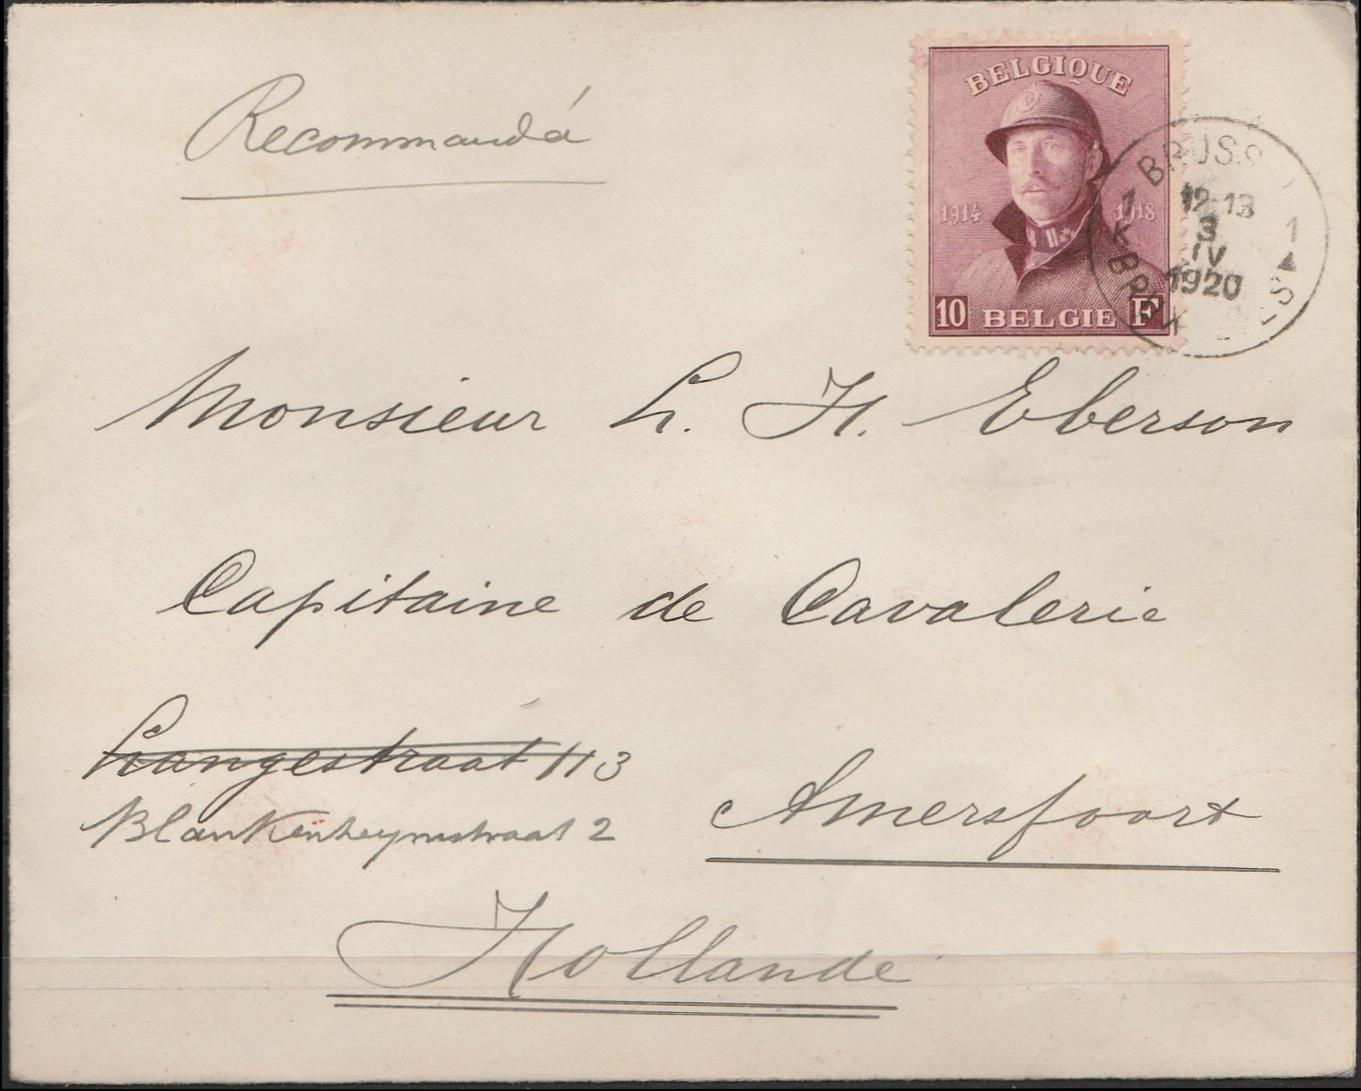 Recommandá
BELGIQUE
1914 1918
10 BELGIE F
1 BRUSS 1
12-13
3
IV
1920
Monsieur L. H. Eberson
Capitaine de Cavalerie
Langestraat 113
Blankenheymstraat 2
Amersfoort
Hollande